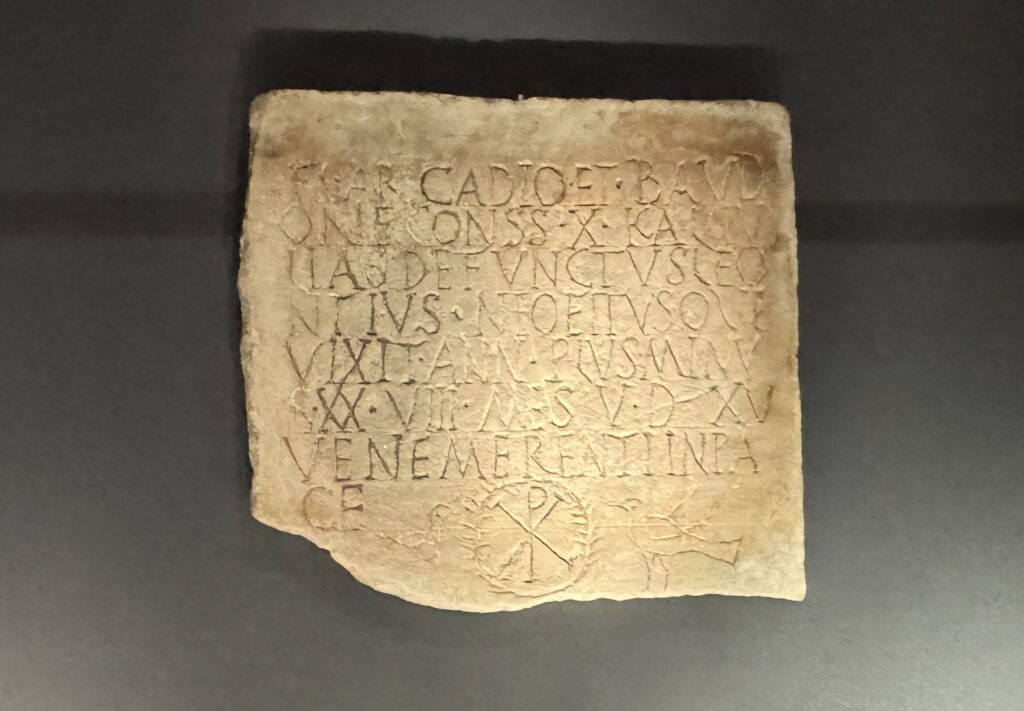 FL·AR·CADIO·ET·BAVD
ONE CONSS·X·KAL·IV
LIAS DEFVNCTVS LEO
NTIVS·NEOFITVS QVI
VIXIT·ANN·PLVS MINV
S·XX·VIII·MES V·D XV
VENEMERENTI IN PA
CE